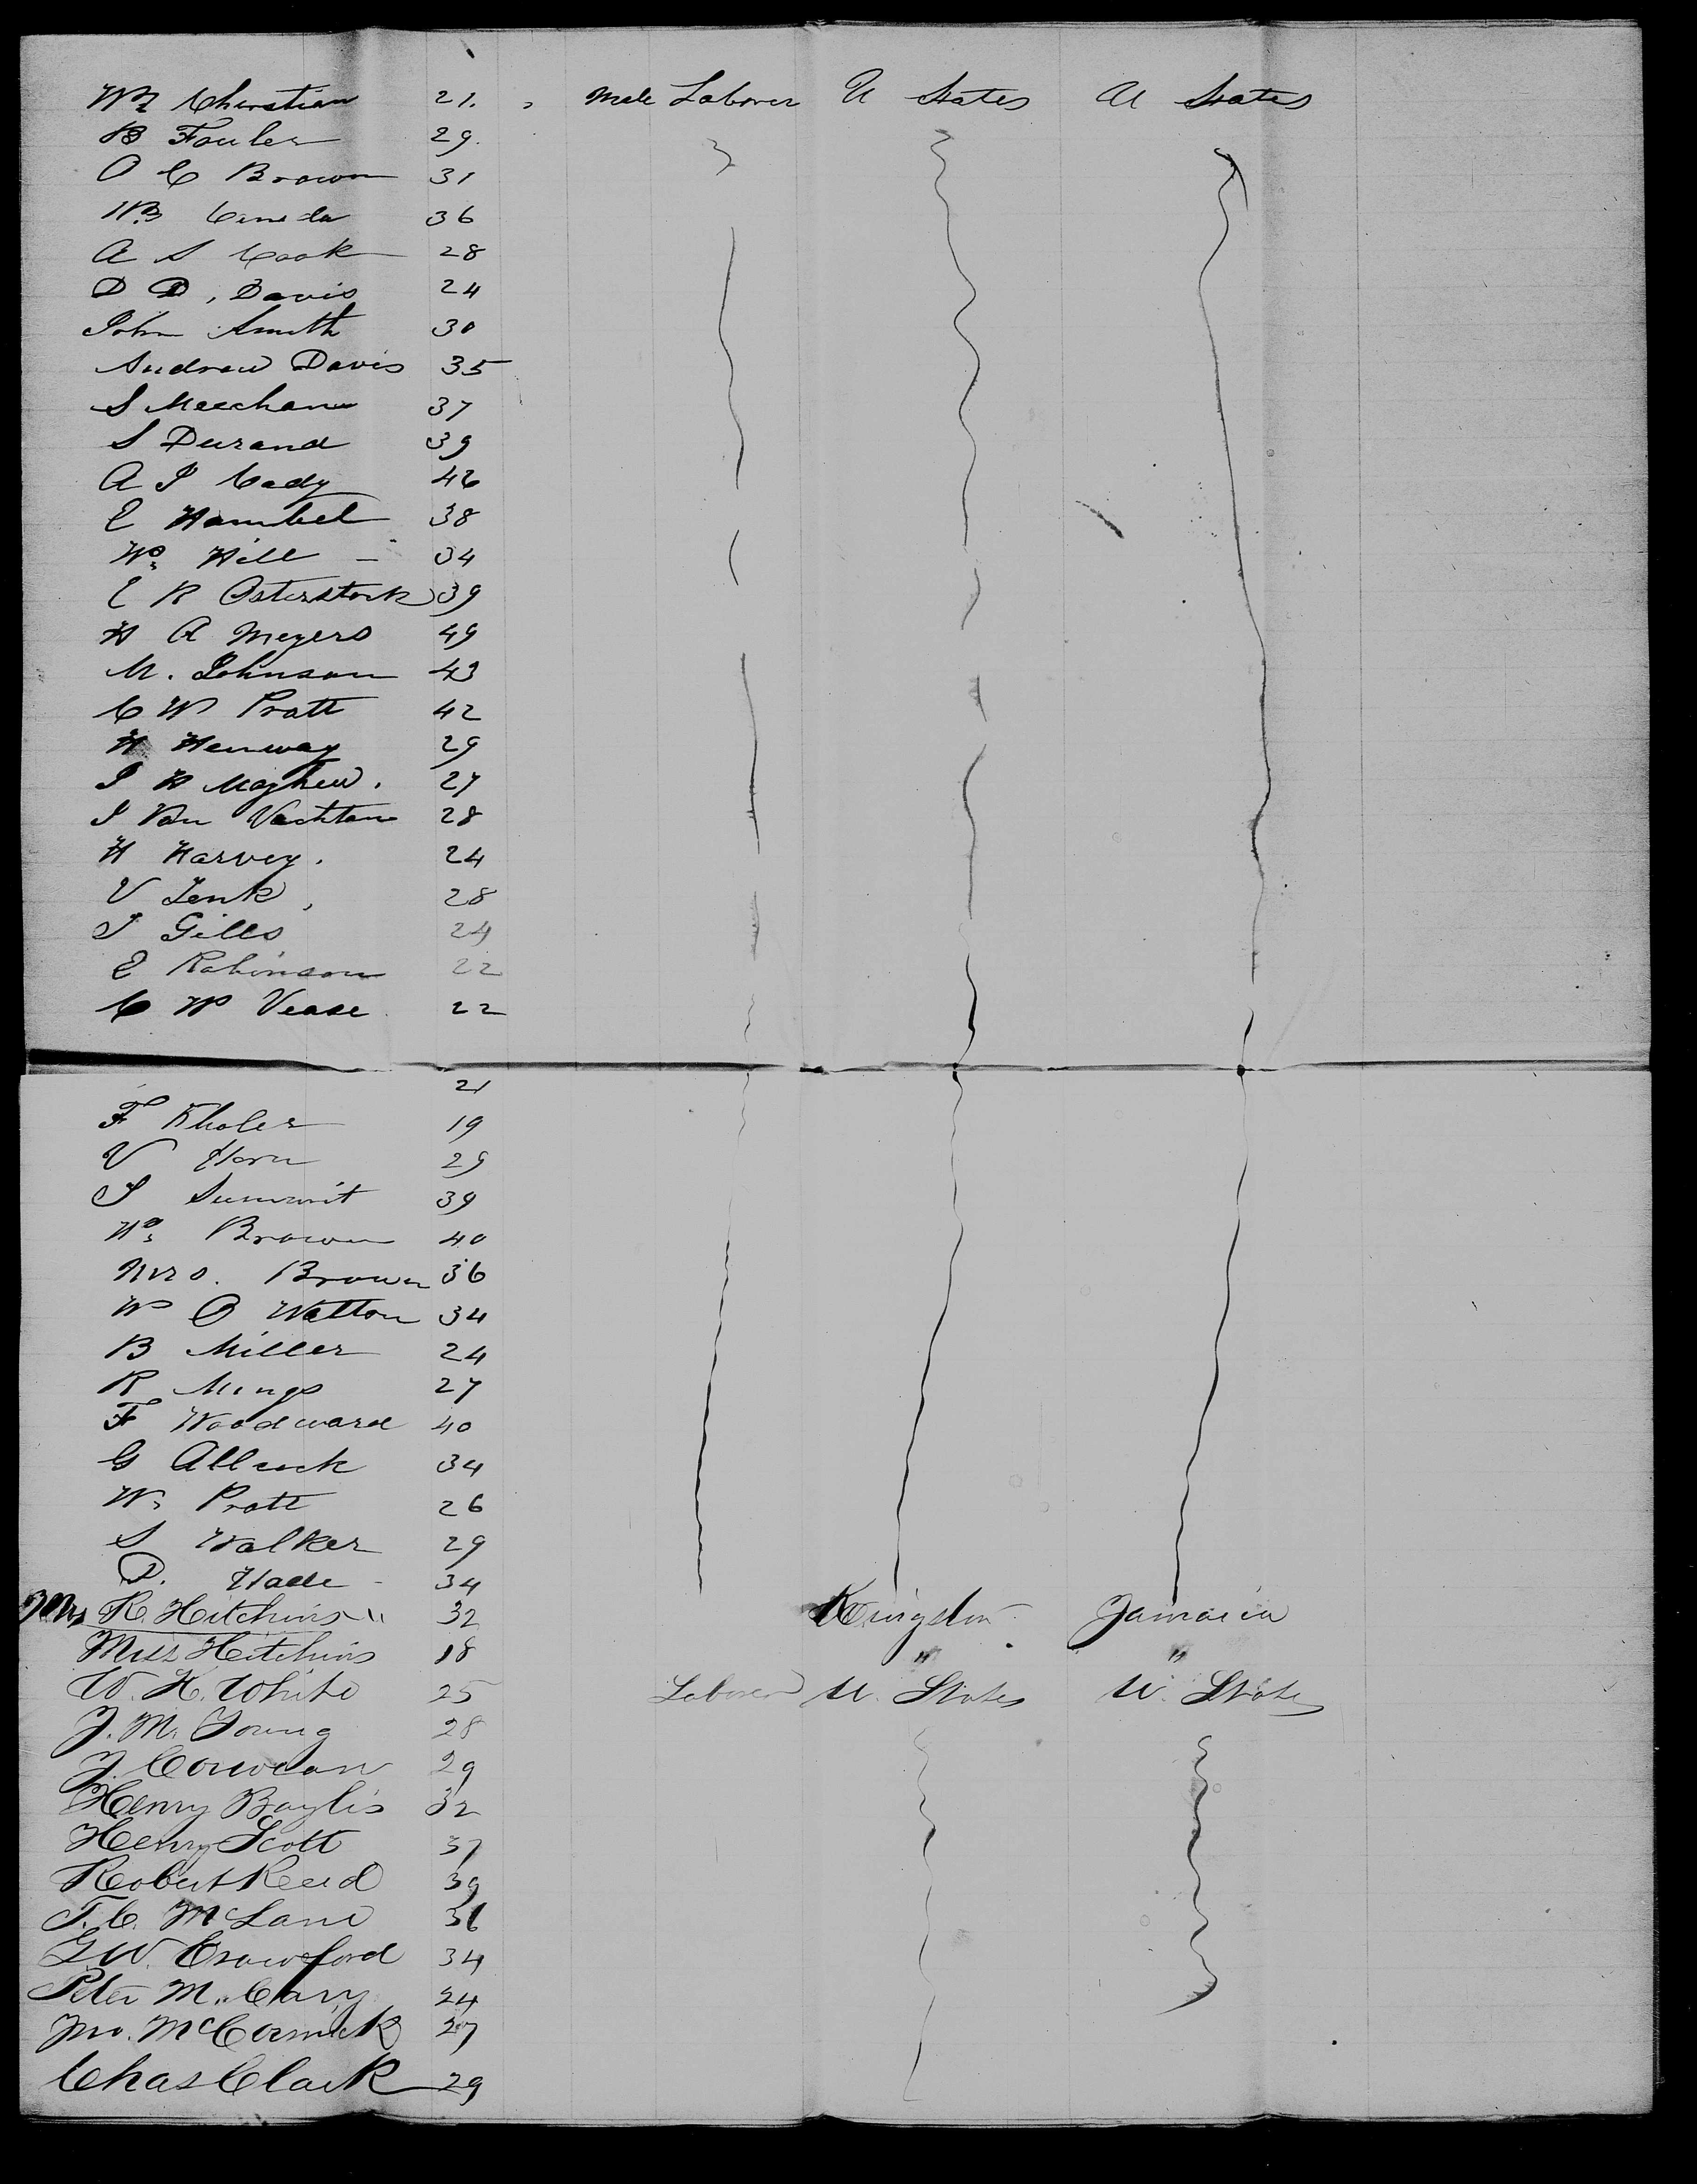 Wm Christian 21. , Male Laborer U States U States
B Fouler 29.
O C Brown 31
WB 36
A S Cook 28
D D, Davis 24
John Smith 30
Andrew Davis 35
S Meecham 37
S Durand 39
A J Cady 46
E Hambel 38
Wm Hill - 34
E R Osterstock 39
H A Meyers 49
M. Johnson 43
C W Pratt 42
H Henway 29
J H Mayhew. 27
J Van Vechten 28
H Harvey. 24
V Zenk, 28
J Gills 24
E Robinson 22
C W Vease 22
21
F Kholer 19
V Horn 29
J Summit 39
Wm Brown 40
Mrs. Brown 36
W O Walton 34
B Miller 24
R Mings 27
F Woodward 40
G Allcock 34
Wm Pratt 26
S Walker 29
D. Wade - 34
Mrs R. Hitchins " 32 Kingston Jamaica
Miss Hitchins 18 " "
W. H. White 25 Laborer U. States U. States
J. M. Young 28
J. Corwean 29
Henry Baylis 32
Henry Scott 37
Robert Reed 39
T. C. McLane 36
G. W. Crawford 34
Peter M. Cary 24
Jno. McCormick 27
Chas Clark 29